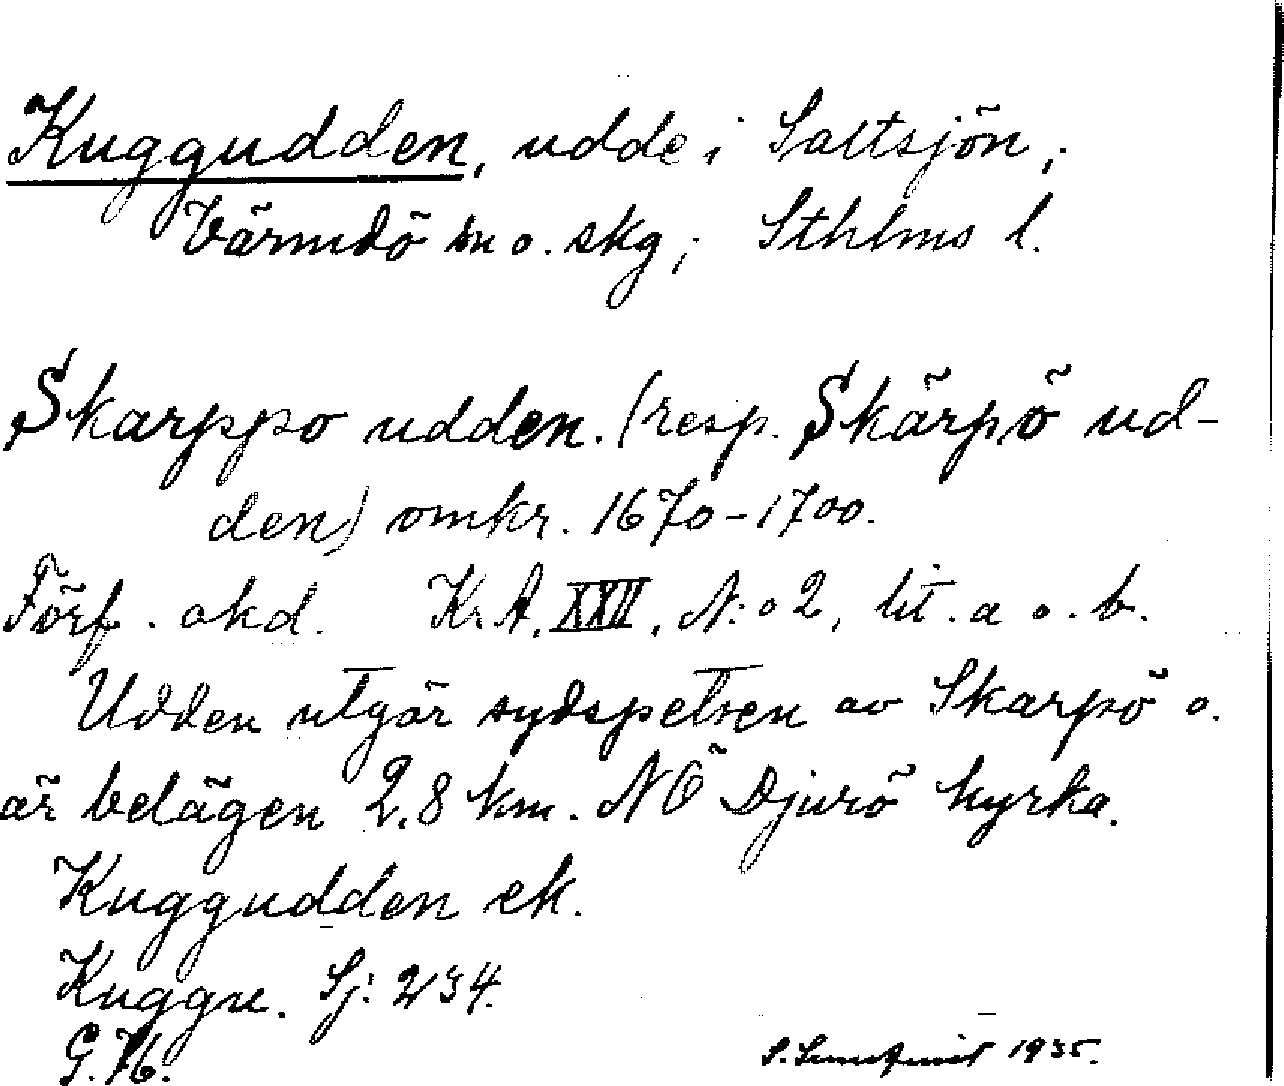 Kuggudden, udde i Saltsjön,
Värmdö sn o. skg, Sthlms l.
Skarppo udden. (resp. Skärpö ud-
den) omkr. 1670-1700.
Förf. okd. Kr. A. XXVI, N:o 2, lit. a o. b.
Udden utgör sydspetsen av Skarpö o.
är belägen 2,8 km. NÖ Djurö kyrka.
Kuggudden ek.
Kuggu. Sj: 234.
G. 76.
1935.